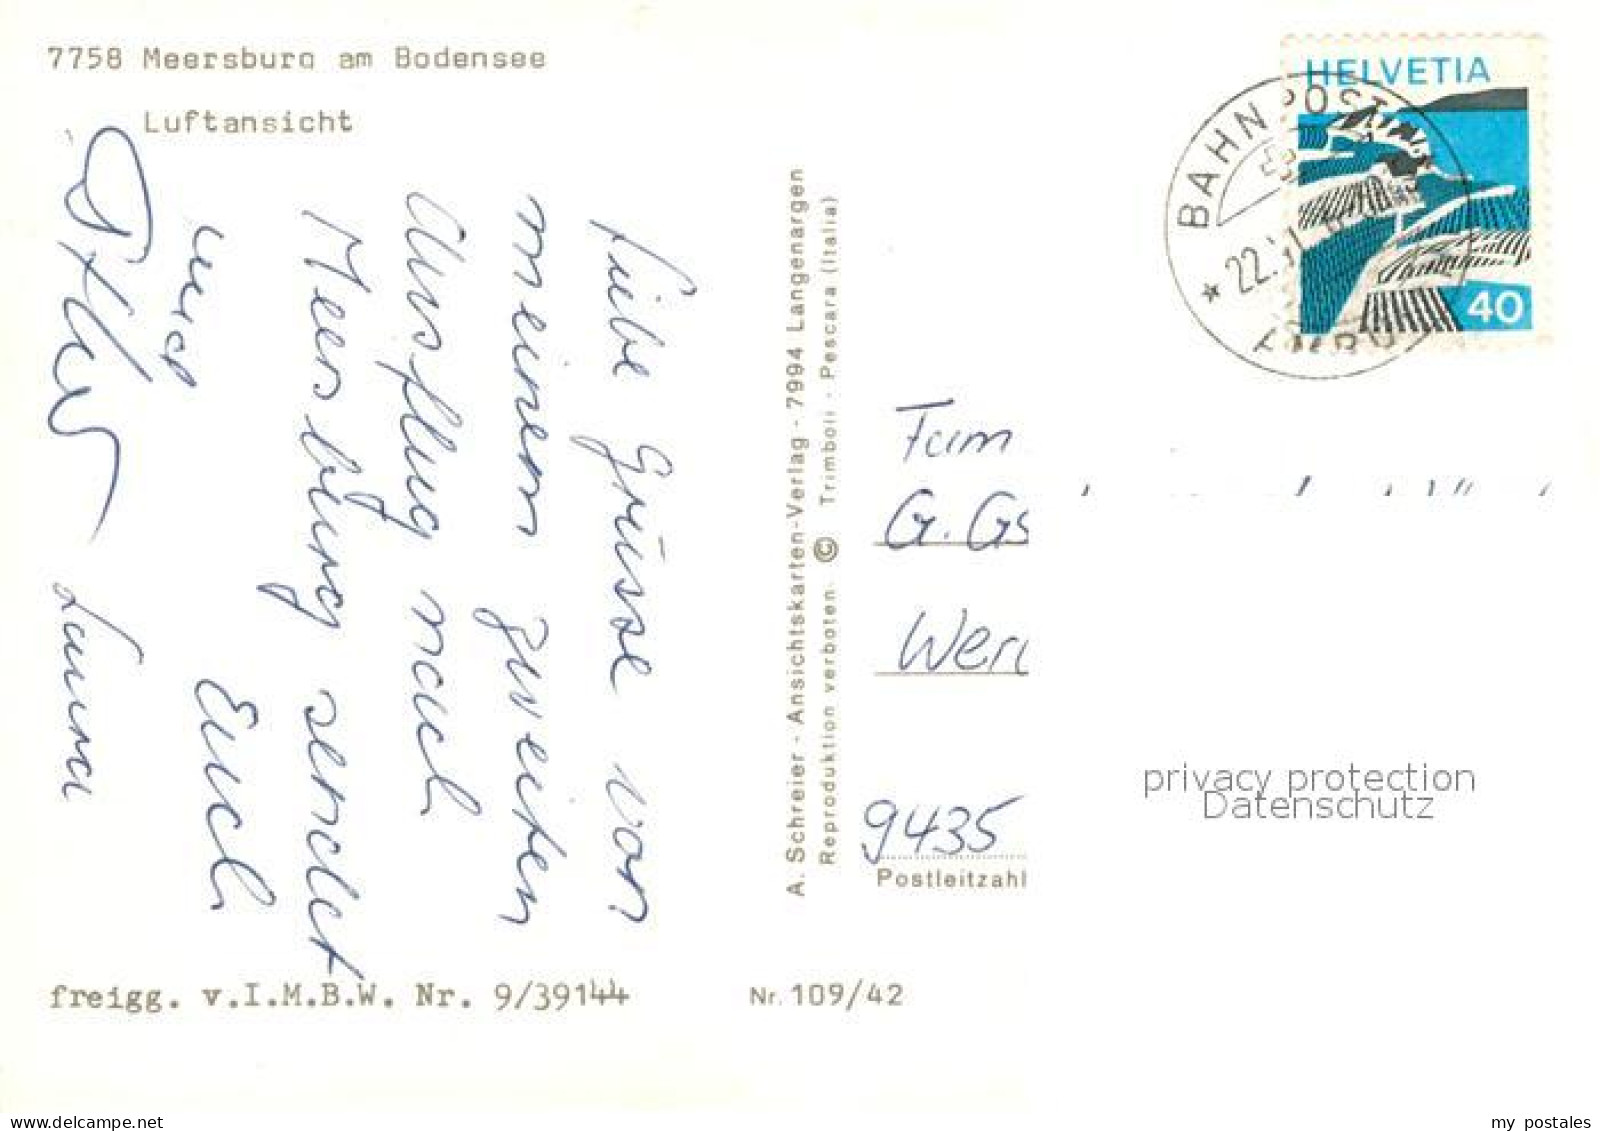 7758 Meersburg am Bodensee
Luftansicht
Liebe Grüsse von
meinem zweiten
Ausflug nach
Meersburg sendet
Euch
Laura
A. Schreier - Ansichtskarten-Verlag - 7994 Langenargen
Reproduktion verboten. © Trimboli - Pescara (Italia)
HELVETIA
40
BAHNPOST
22.
Fam
G. Gs
Wer
9435
Postleitzahl
privacy protection
Datenschutz
freigg. v.I.M.B.W. Nr. 9/39144
Nr. 109/42
www.delcampe.net
my_postales